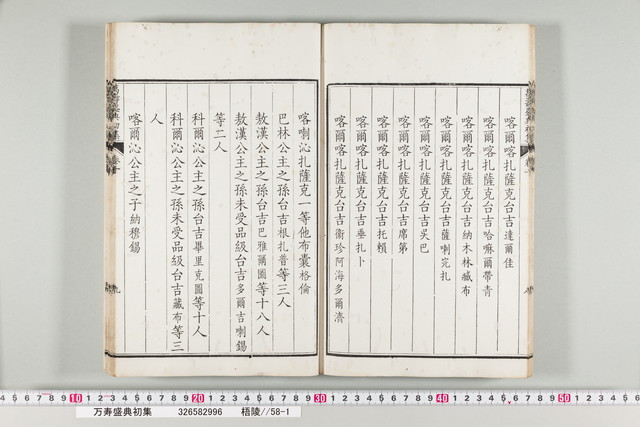 喀爾喀扎薩克台吉達爾佳
喀爾喀扎薩克台吉哈嘛爾帶青
喀爾喀扎薩克台吉納木林藏布
喀爾喀扎薩克台吉薩喇完扎
喀爾喀扎薩克台吉吴巴
喀爾喀扎薩克台吉席第
喀爾喀扎薩克台吉托賴
喀爾喀扎薩克台吉垂扎卜
喀爾喀扎薩克台吉衞珍阿海多爾濟
喀喇沁扎薩克一等他布囊格倫
巴林公主之孫台吉根扎普等三人
敖漢公主之孫台吉巴雅爾圖等十八人
敖漢公主之孫未受品級台吉多爾吉喇錫
等二人
科爾沁公主之孫台吉畢里克圖等十人
科爾沁公主之孫未受品級台吉藏布等三
人
喀爾沁公主之子納穆錫
10 20 30 40 50
万寿盛典初集 326582996 梧陵//58-1